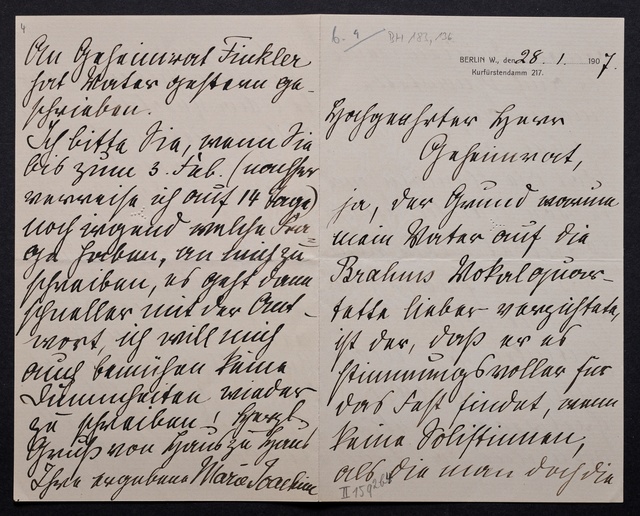 4
An Geheimrat Finkler
hat Vater gestern ge-
schrieben.
Ich bitte Sie, wenn Sie
bis zum 3. Feb. (nachher
verreise ich auf 14 Tage)
noch irgend welche Fra-
ge haben, an mich zu
schreiben, es geht dann
schneller mit der Ant-
wort, ich will mich
auch bemühen keine
Dummheiten wieder
zu schreiben! Herzl.
Gruß von Haus zu Haus
Ihre ergebene Marie Joachim
BH 183, 136
BERLIN W., den 28. 1. 1907.
Kurfürstendamm 217.
Hochgeehrter Herr
Geheimrat,
ja, der Grund warum
mein Vater auf die
Brahms Vokalquar-
tette lieber verzichtete,
ist der, daß er es
stimmungsvoller für
das Fest findet, wenn
keine Solistinnen,
als die man doch die
II 159